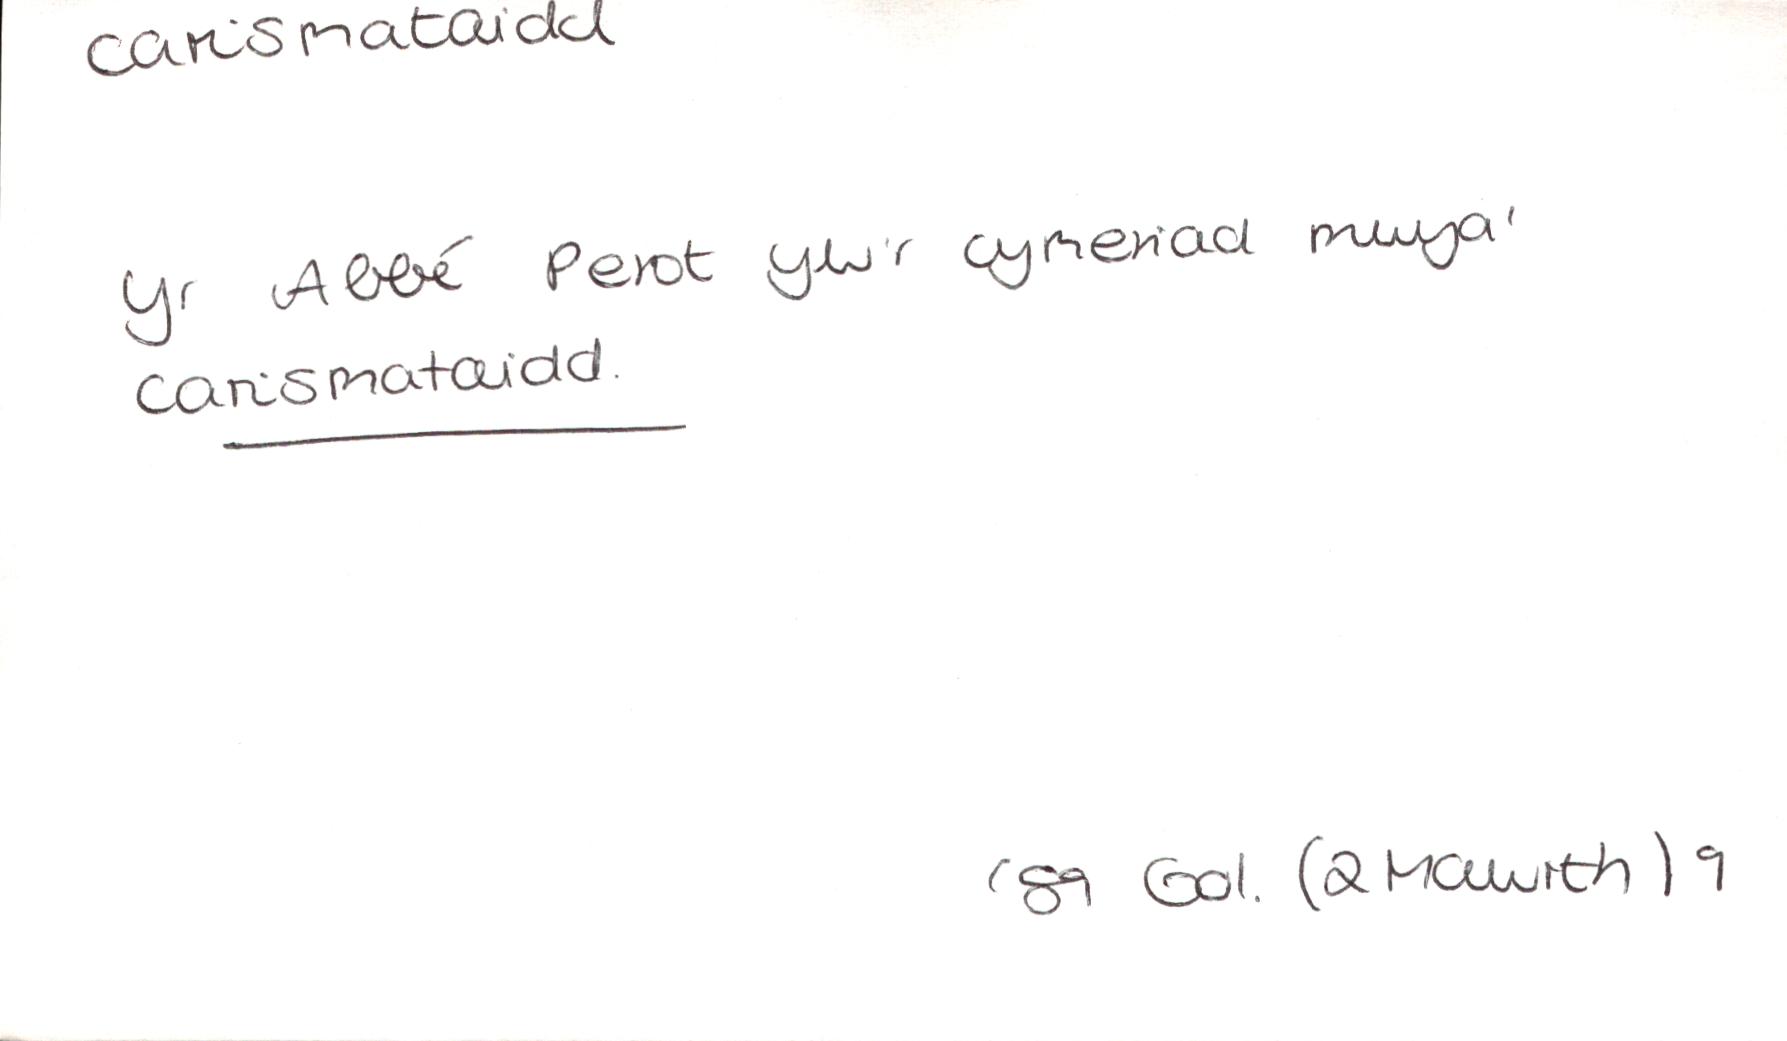 carismataidd
Yr Abbé Perot yw'r cymeriad mwya'
carismataidd.
'89 Gol. (2 Mawrth) 9